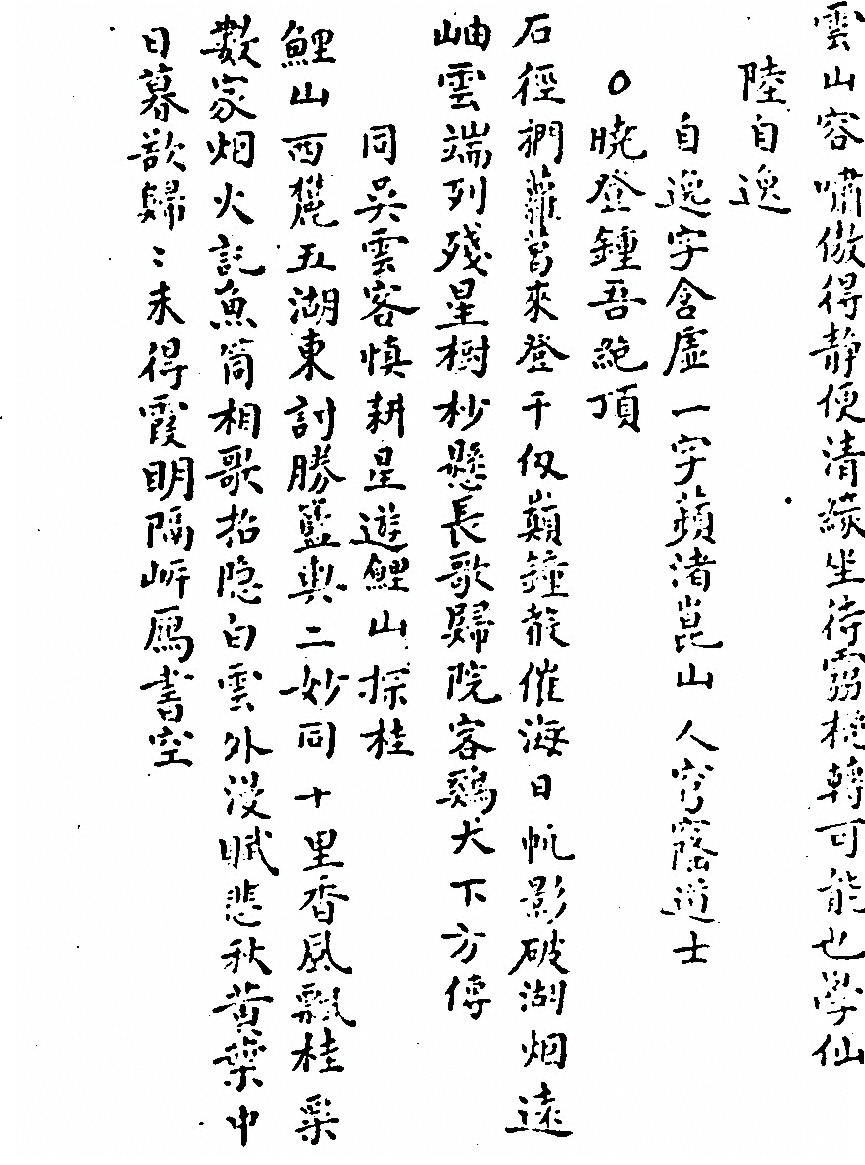 雲山容嘯傲得静便清緣坐待雰機轉可能也學仙
陸自逸
自逸字含虛一字蘋渚崑山人穹窿道士
○曉登鍾吾絶頂
石徑捫蘿葛來登千仭巔鐘殽催海日帆影破湖烟遠
岫雲端列殘星樹杪懸長歌歸院客鷄犬下方傳
同吴雲客慎耕星遊鯉山探桂
鯉山西麓五湖東討勝籃輿二妙同十里香風飄桂粟
數家烟火記魚筒相歌招隐白雲外漫賦悲秋黄葉中
日暮欲歸〻未得霞明隔岸鴈書空